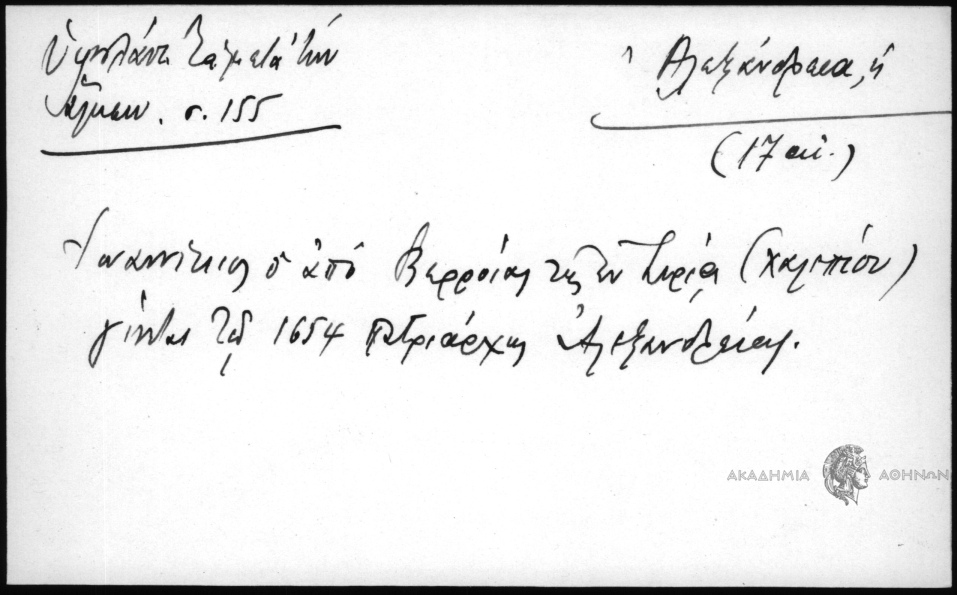 Ὑψηλάντι Τὰ μετὰ τὴν
ἅλωσιν. σ. 155
Ἀλεξάνδρεια, ἡ
(17 αἰ.)
Ἰωαννίκιος ὁ ἀπὸ Βερροίας τῆς ἐν Συρίᾳ (Χαλεπίου)
γίνεται τῷ 1654 πατριάρχης Ἀλεξανδρείας.
ΑΚΑΔΗΜΙΑ ΑΘΗΝΩΝ